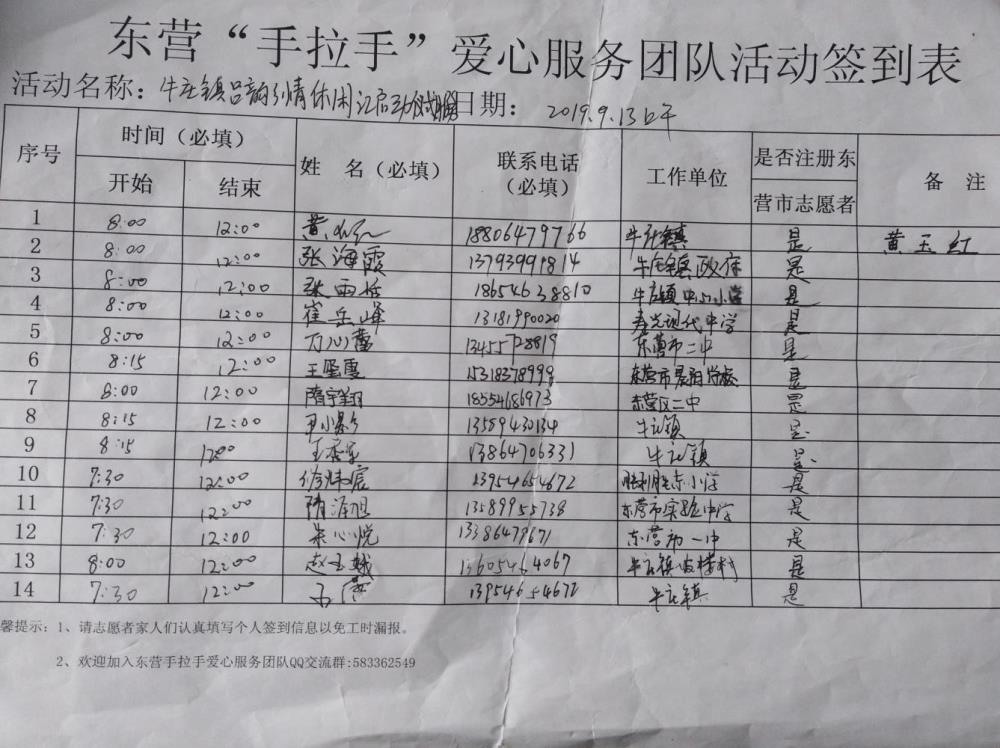 东营“手拉手”爱心服务团队活动签到表
活动名称：牛庄镇吕剧 休闲 日期：2019.9.13上午
序号 时间（必填） 姓 名（必填） 联系电话（必填） 工作单位 是否注册东营市志愿者 备 注
开始 结束
1 8:00 12:00 黄 18806479766 牛庄镇 是 黄玉红
2 8:00 12:00 张海霞 13793991814 牛庄镇政府 是
3 8:00 12:00 张雨 18654638810 牛庄镇中心小学 是
4 8:00 12:00 崔岳峰 13181990020 寿光现代中学 是
5 8:00 12:00 万心 13455728819 东营市二中 是
6 8:15 12:00 王 15318378999 东营市 是
7 8:00 12:00 隋宇翔 18554686973 东营区二中 是
8 8:15 12:00 13589430134 牛庄镇 是
9 8:15 1200 王 13864706331 牛庄镇 是
10 7:30 12:00 徐 13954654672 小学 是
11 7:30 12:00 隋泽旭 13589955738 东营市实验中学 是
12 7:30 12:00 朱心悦 13386479671 东营市一中 是
13 8:00 12:00 赵玉 4067 牛庄镇 村 是
14 7:30 12:00 13954654672 牛庄镇 是
馨提示：1、请志愿者家人们认真填写个人签到信息以免工时漏报。
2、欢迎加入东营手拉手爱心服务团队QQ交流群:583362549